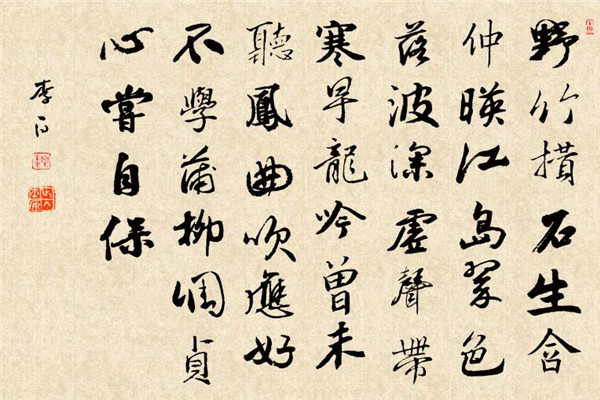 野竹攢石生含
仲暎江島翠色
落波深虛聲帶
寒早龍吟曾未
聽鳳曲吹應好
不學蒲柳凋貞
心嘗自保
李白